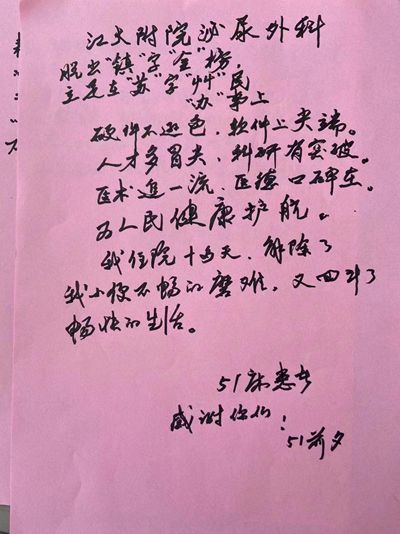 江大附院泌尿外科
脱出"镇"字"金"榜,
立足在"苏"字"艸"民
"办"事上
硬件不逊色,软件上尖端。
人才多冒尖,科研有突破。
医术進一流,医德口碑在。
为人民健康护航。
我住院十多天,解除了
我小便不畅的磨难,又回到了
畅快的生活。
51床患者
感谢你们!
51前夕